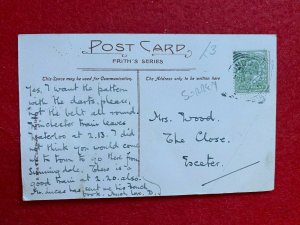 POST CARD
FRITH'S SERIES
1/3
This Space may be used for Communication.
The Address only to be written here
SURREY
Yes, I want the pattern
with the darts, please,
not the belt all round.
Winchester train leaves
Waterloo at 2.13. I did
not think you would come
up to town to go there from
Sunning dale. There is a
good train at 2.20. also.
Mr. Lucas has sent us his French
book. Much love. D.
Mrs. Wood.
The Close.
Exeter.